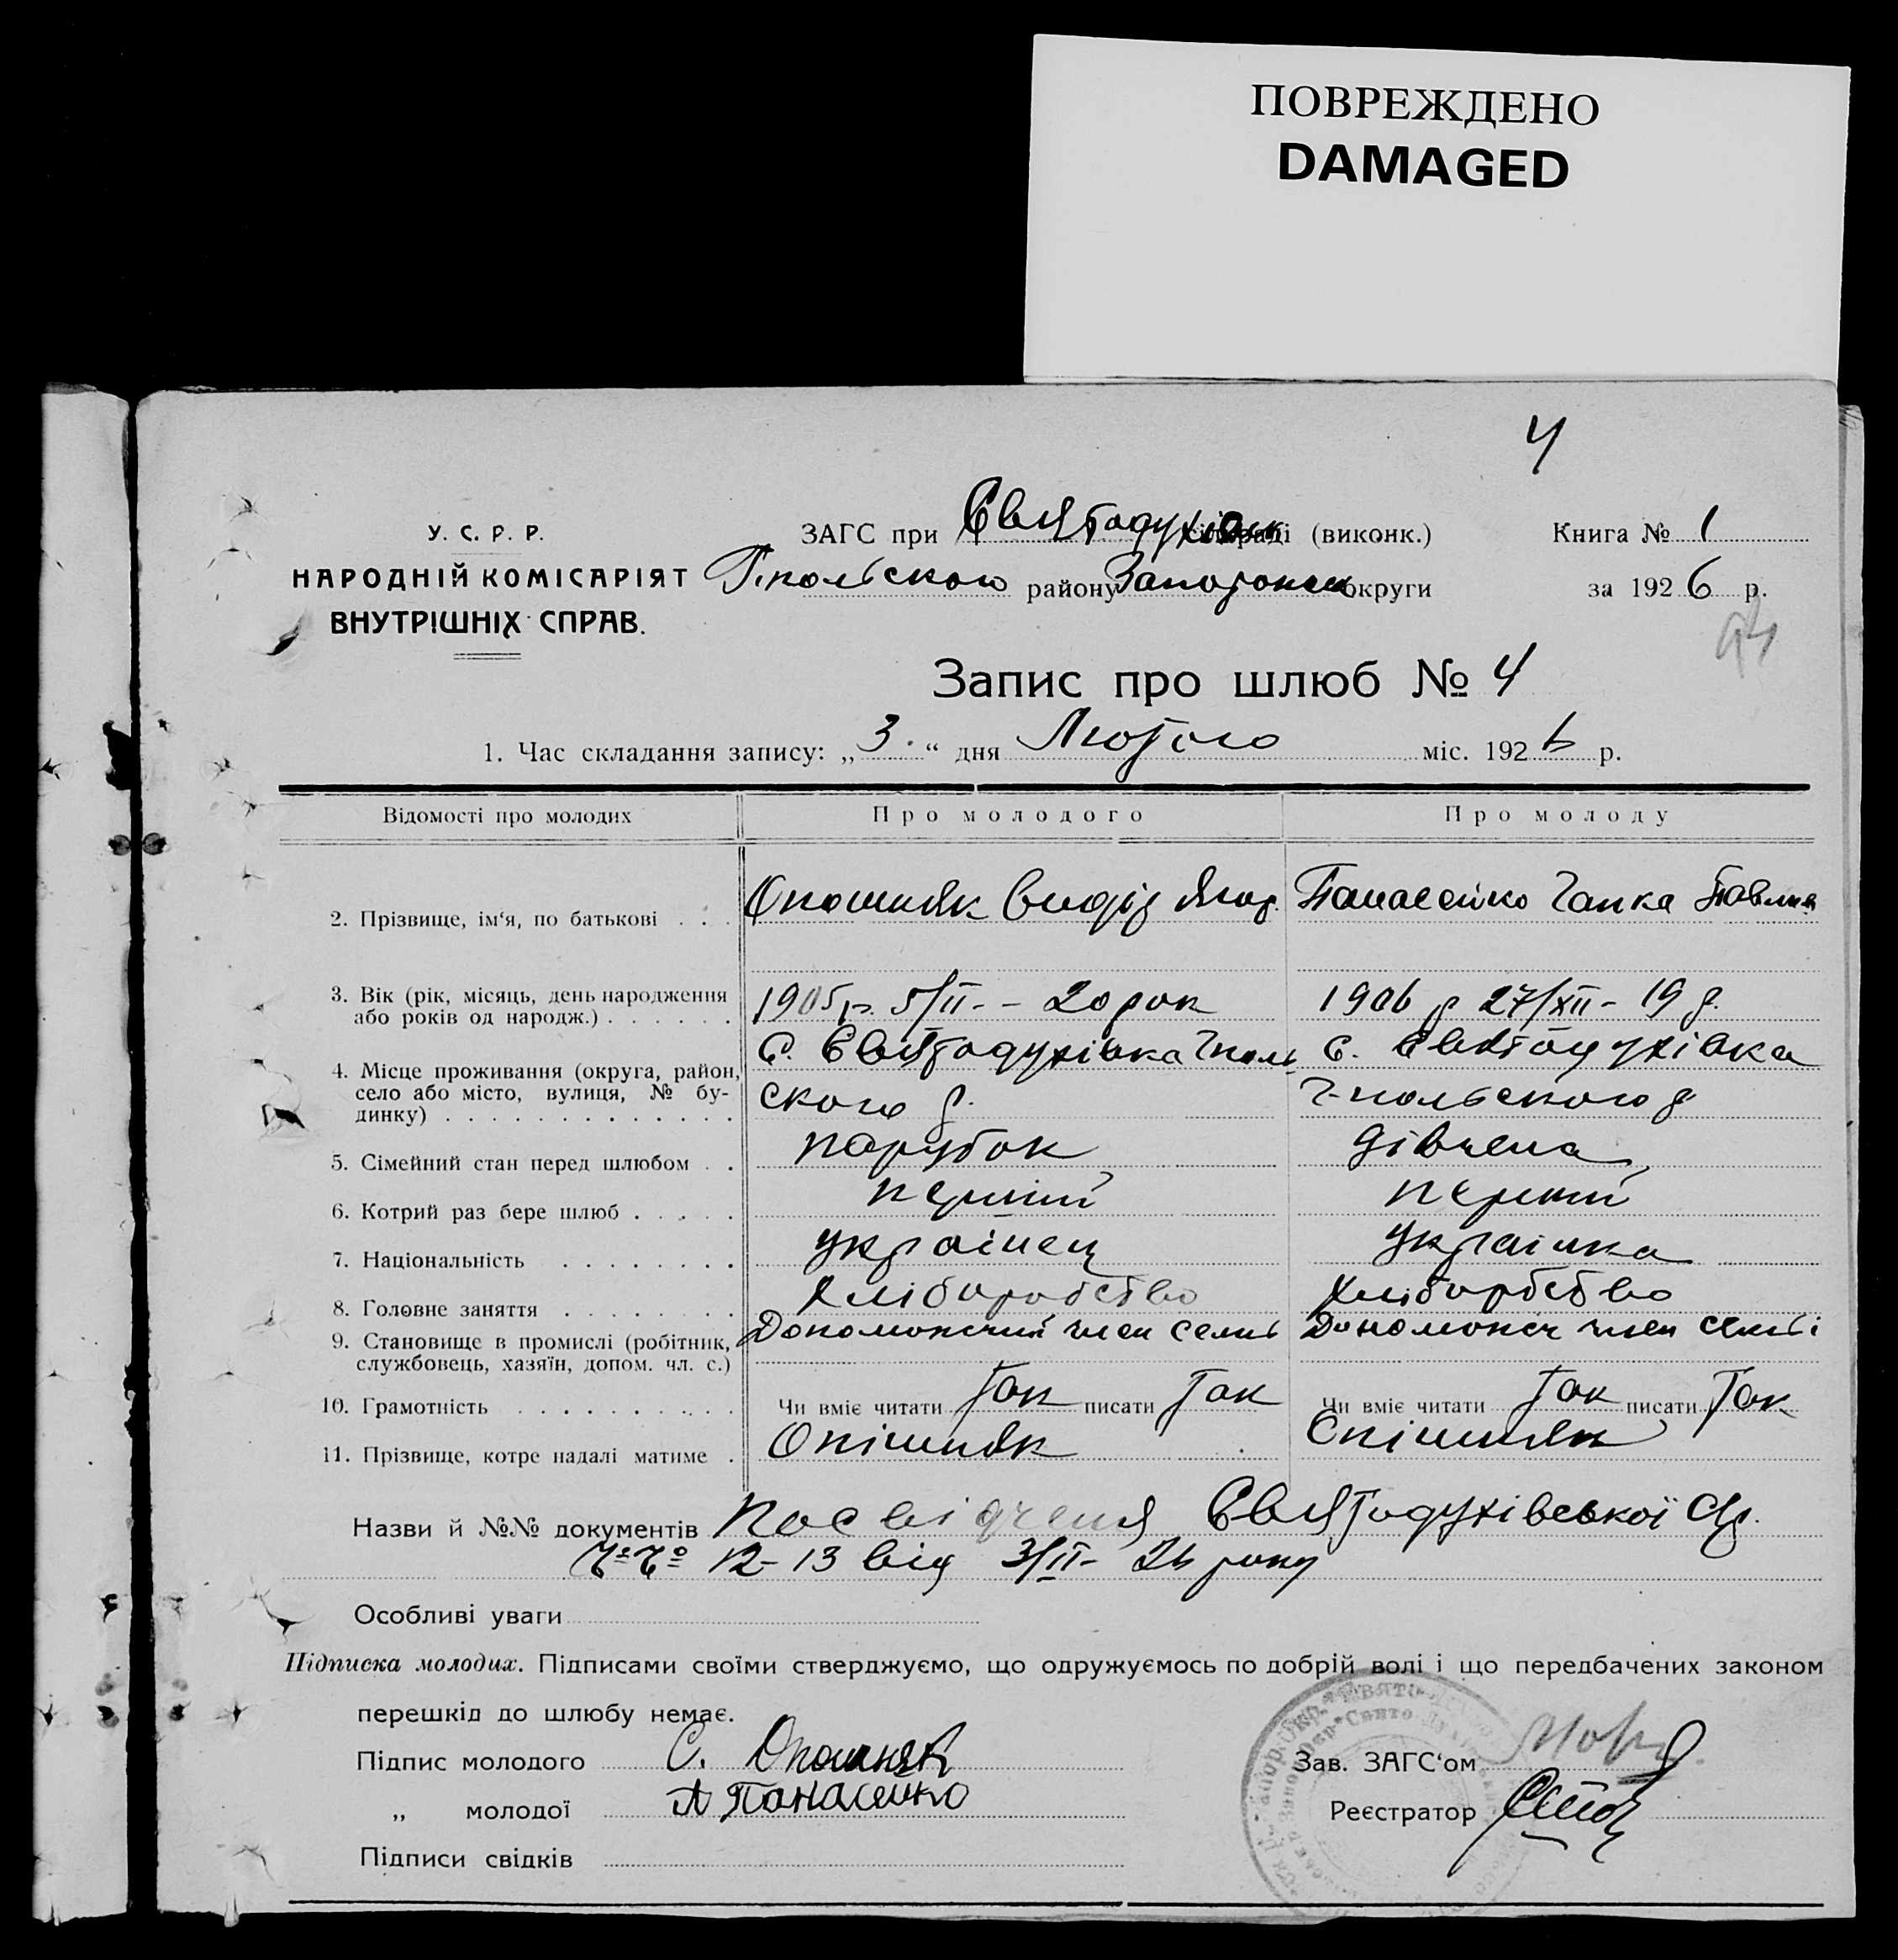 ПОВРЕЖДЕНО
DAMAGED
4
У. С. Р. Р.
НАРОДНІЙ КОМІСАРІЯТ
ВНУТРІШНІХ СПРАВ.
ЗАГС при Святодухівск сільраді (виконк.)
району округи
Книга № 1
за 1926 р.
Запис про шлюб № 4
1. Час складання запису: „3.“ дня Лютого міс. 1926 р.
Відомості про молодих Про молодого Про молоду
2. Прізвище, ім'я, по батькові . . . Опошняк Панасенко Ганка Павлив
3. Вік (рік, місяць, день народження або років од народж.) . . . . . . 1905 р. 5/II - 20 рок 1906 р 27/XII - 19 р.
4. Місце проживання (округа, район, село або місто, вулиця, № будинку) . . . . . . . . . . . . . с. Святодухівка Гполь
ского р. с. Святодухівка
Г-польського р
5. Сімейний стан перед шлюбом . . парубок дівчена
6. Котрий раз бере шлюб . . . . . перший перший
7. Національність . . . . . . . . українец українка
8. Головне заняття . . . . . . . . хліборобство хліборбство
9. Становище в промислі (робітник, службовець, хазяїн, допом. чл. с.) Допоможчий член семьї Допоможч член семьі
10. Грамотність . . . . . . . . . . Чи вміє читати Так писати Так Чи вміє читати Так писати Так
11. Прізвище, котре надалі матиме . Опішняк Опішняк
Назви й №№ документів Посвідченя Святодухівської Ср.
№№ 12-13 від 3/II- 26 року
Особливі уваги
Підписка молодих. Підписами своїми стверджуємо, що одружуємось по добрій волі і що передбачених законом
перешкід до шлюбу немає.
Підпис молодого С. Опошняк
„ молодої А Панасенко
Підписи свідків
Зав. ЗАГС'ом
Реєстратор